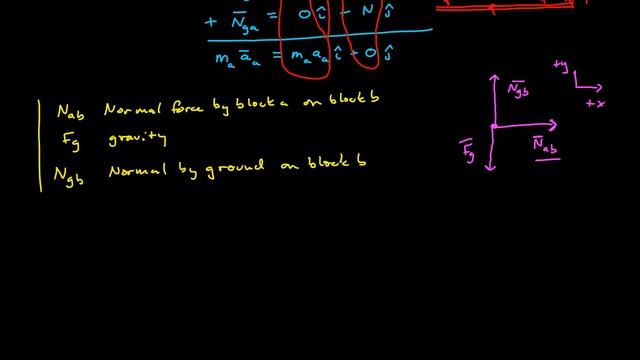 + N̄ga = 0 î - N ĵ
ma āa = ma aa î + 0 ĵ
Nab Normal force by block a on block b
Fg gravity
Ngb Normal by ground on block b
N̄gb
+y
+x
F̄g
N̄ab